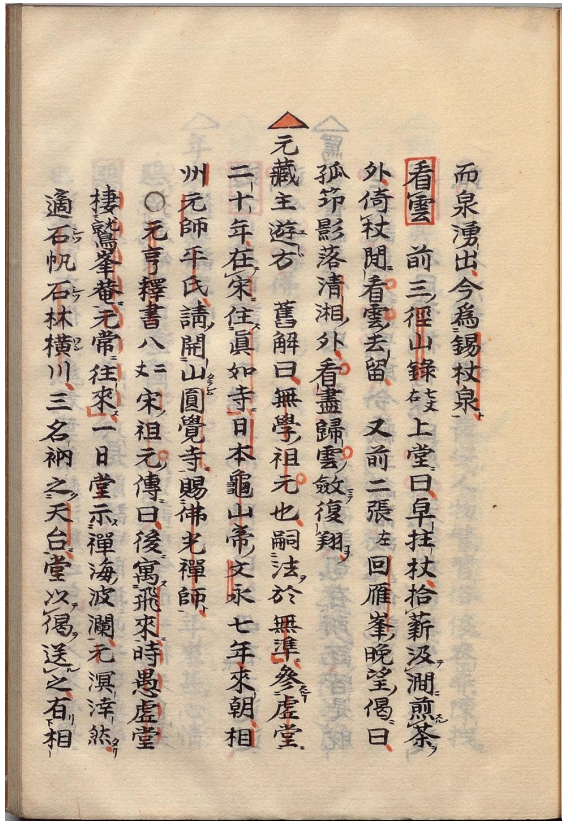 而泉湧出今爲錫杖泉
看雲 前三徑山錄七丈右上堂曰卓拄杖拾薪汲澗煎茶
外倚杖閑看雲去留 又前二張左回雁峯晚望偈曰
孤筇影落清湘外看盡歸雲斂復翔
元藏主遊方 舊解曰無學祖元也嗣法於無準參虛堂
二十年在宋住眞如寺日本龜山帝文永七年來朝相
州元師平氏請開山圓覺寺賜佛光禪師
○元亨釋書八二丈宋祖元傳曰後寓飛來時愚虛堂
棲鷲峯菴元常往來一日堂示禪海波瀾元溟涬然
適石帆石林橫川三名衲之天台堂以偈送之有相